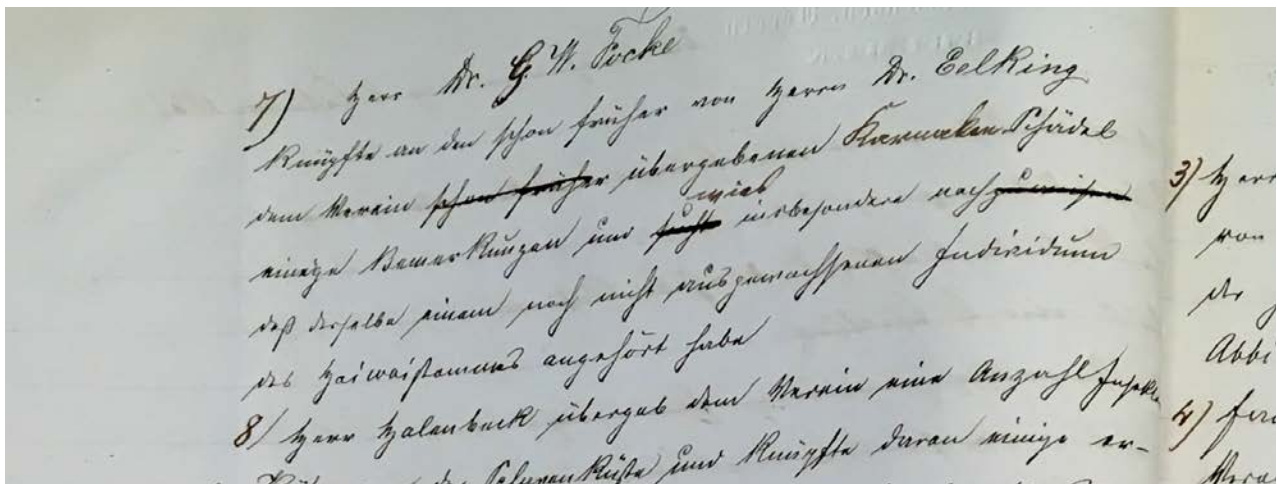 7) Herr Dr. G. W. Focke
knüpfte an den schon früher von Herrn Dr. Eelking
dem Verein schon früher übergebenen Karnaken Schädel
wies
einige Bemerkungen und sucht insbesondere nachzuweisen
daß derselbe einem noch nicht ausgewachsenen Individuum
des Haiwaistammes angehört habe
8) Herr Halenbeck übergab dem Verein eine Anzahl Insekten
der Sklavenküste und knüpfte daran einige er-
3) Herr
von
der
Abbi
4)